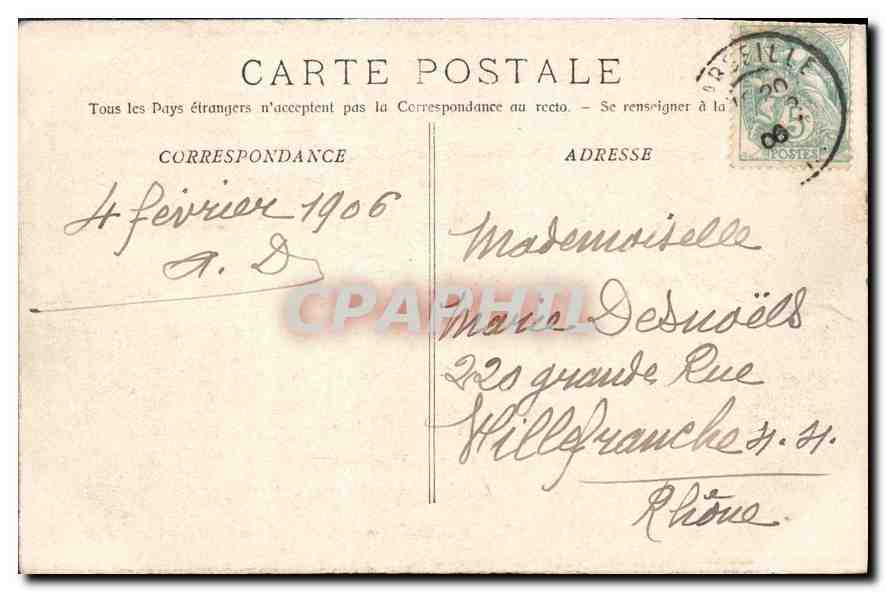 CARTE POSTALE
Tous les Pays étrangers n'acceptent pas la Correspondance au recto. – Se renseigner à la
CORRESPONDANCE
4 février 1906
A. D
ADRESSE
Mademoiselle
Marie Desnoëls
220 grande Rue
Villefranche s. s.
Rhône
ARSEILLE
20
06
5
POSTES
CPAPHIL